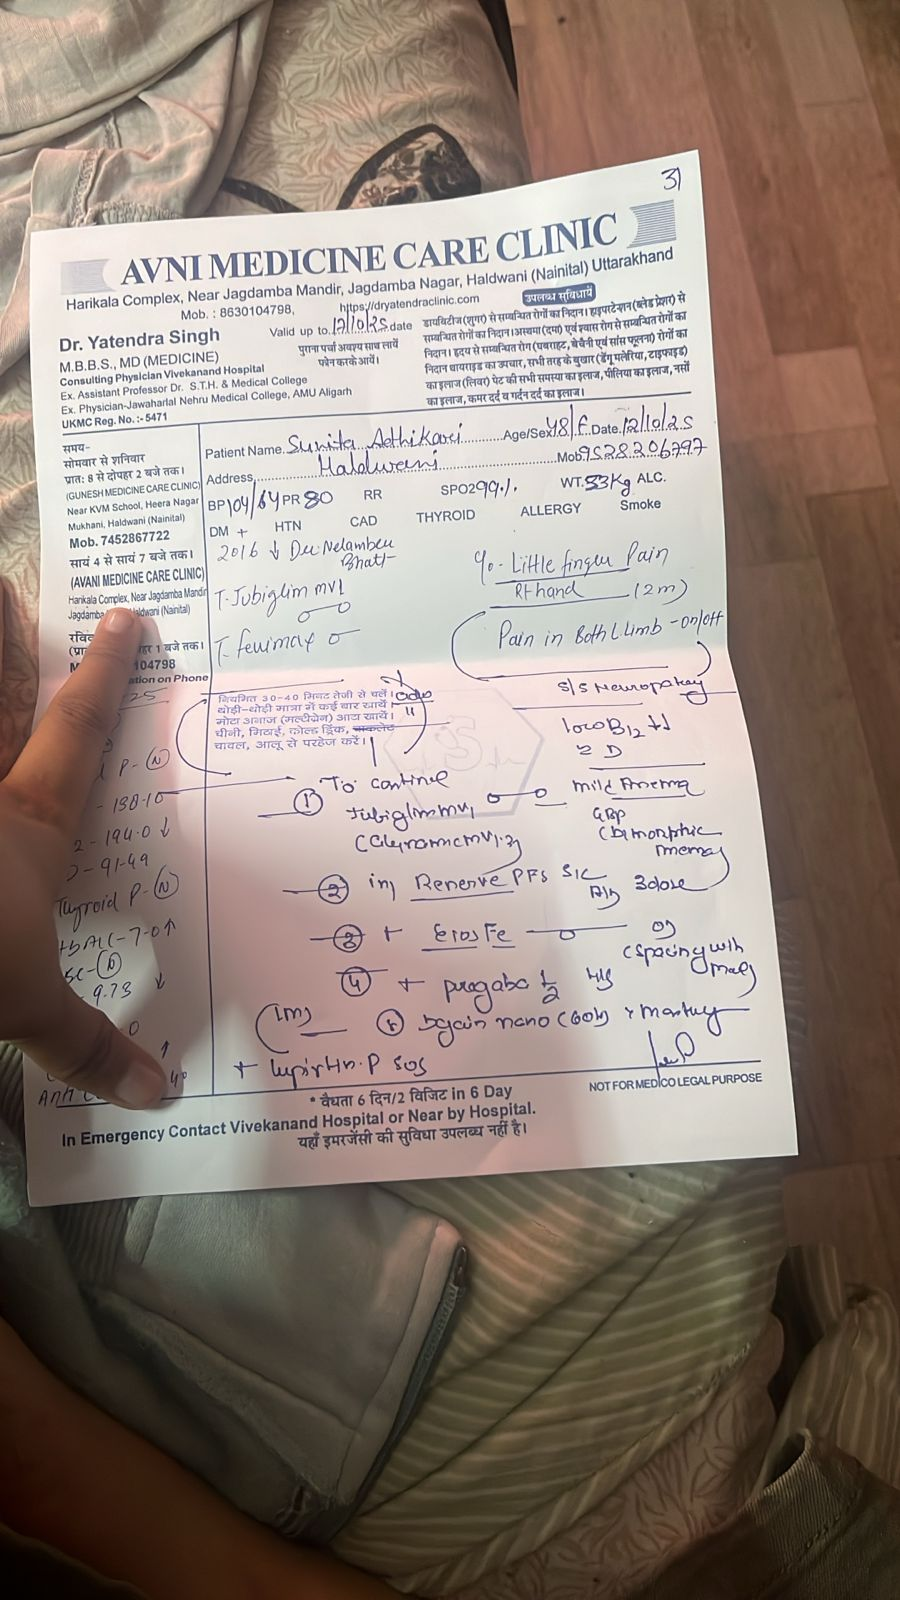 31
AVNI MEDICINE CARE CLINIC
Harikala Complex, Near Jagdamba Mandir, Jagdamba Nagar, Haldwani (Nainital) Uttarakhand
Mob. : 8630104798, https://dryatendraclinic.com
उपलब्ध सुविधायें
Dr. Yatendra Singh
M.B.B.S., MD (MEDICINE)
Consulting Physician Vivekanand Hospital
Ex. Assistant Professor Dr. S.T.H. & Medical College
Ex. Physician-Jawaharlal Nehru Medical College, AMU Aligarh
UKMC Reg. No.:- 5471
Valid up to 12/10/25 date
पुराना पर्चा अवश्य साथ लायें
फोन करके आयें।
डायबिटीज (शुगर) से सम्बन्धित रोगों का निदान। हाइपरटेन्शन (ब्लेड प्रेशर) से
सम्बन्धित रोगों का निदान। अस्थमा (दमा) एवं श्वास रोग से सम्बन्धित रोगों का
निदान। हृदय से सम्बन्धित रोग (घबराहट, बेचैनी एवं सांस फूलना) रोगों का
निदान थायराइड का उपचार, सभी तरह के बुखार (डेंगू मलेरिया, टाइफाइड)
का इलाज (लिवर) पेट की सभी समस्या का इलाज, पीलिया का इलाज, नसों
का इलाज, कमर दर्द व गर्दन दर्द का इलाज।
Patient Name Sunita Adhikari Age/Sex 48/F Date 12/10/25
Address Haldwani Mob 9528206797
BP 104/64 PR 80 RR SPO2 99% WT. 53Kg ALC.
DM + HTN CAD THYROID ALLERGY Smoke
समय-
सोमवार से शनिवार
प्रातः 8 से दोपहर 2 बजे तक।
(GUNESH MEDICINE CARE CLINIC)
Near KVM School, Heera Nagar
Mukhani, Haldwani (Nainital)
Mob. 7452867722
सायं 4 से सायं 7 बजे तक।
(AVANI MEDICINE CARE CLINIC)
Harikala Complex, Near Jagdamba Mandir
Jagdamba Haldwani (Nainital)
1 बजे तक।
104798
ation on Phone
2016 ↓ Dr. Nelamber
Bhatt
T. Jubiglim mv1
c/o - Little finger Pain
Rt hand (2m)
Pain in Both L limb - on/off
S/S Neuropathy
नियमित 30-40 मिनट तेजी से चलें।
थोड़ी-थोड़ी मात्रा में कई बार खायें।
मोटा अनाज (मल्टीग्रेन) आटा खायें।
चीनी, मिठाई, कोल्ड ड्रिंक,
चावल, आलू से परहेज करें।
low B12 ↓↓
D
mild Anemia
GBP
(Dimorphic
Anemia)
① To continue
Jubiglim mv1
② inj Renerve PFS
3 dose
③ +
(spacing with
④ + pregaba 1/2 HS
(60k)
+ Lupirtin-P SOS
25
P - (N)
- 138.10
2 - 194.0 ↓
- 91.49
Thyroid P - (N)
HbA1C - 7.0 ↑
- 9.73 ↓
NOT FOR MEDICO LEGAL PURPOSE
* वैधता 6 दिन/2 विजिट in 6 Day
In Emergency Contact Vivekanand Hospital or Near by Hospital.
यहाँ इमरजेंसी की सुविधा उपलब्ध नहीं है।